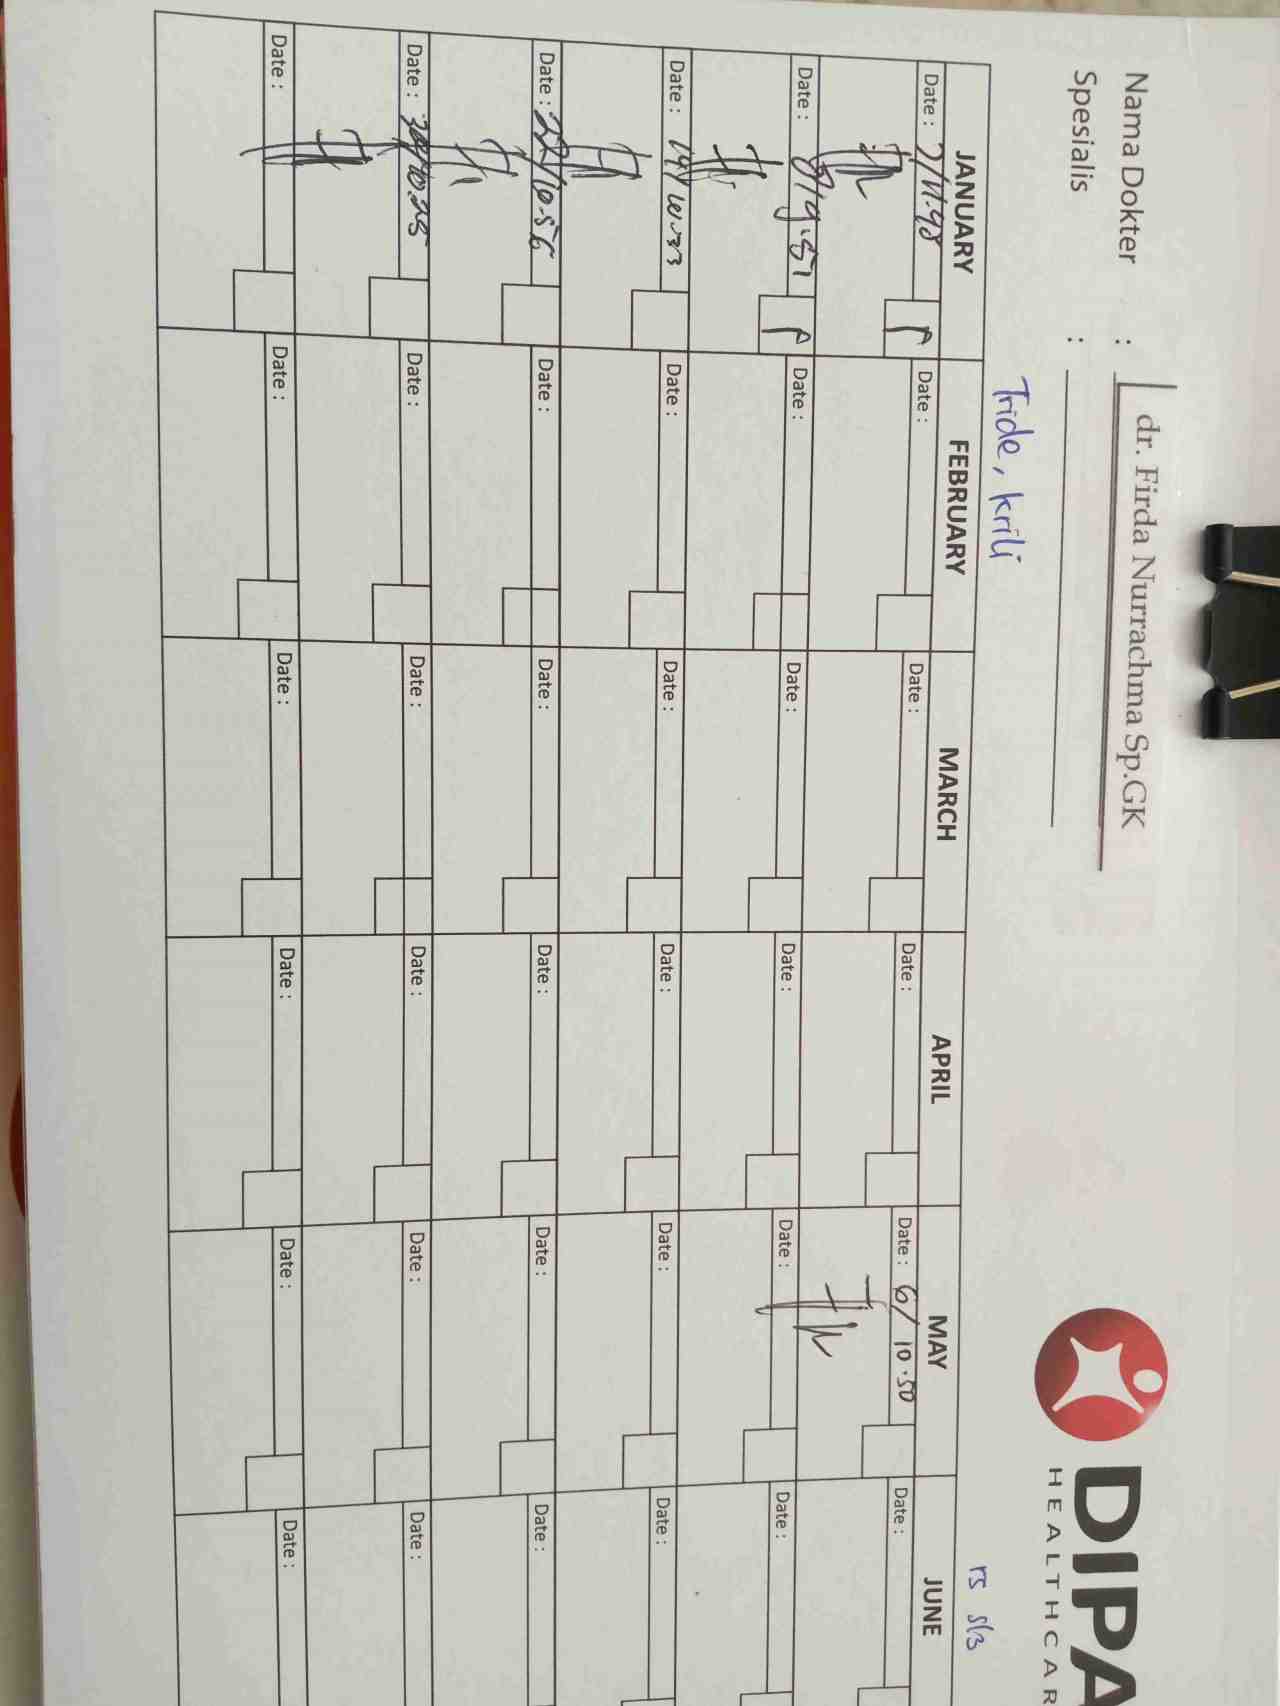 Nama Dokter : dr. Firda Nurrachma Sp.GK
Spesialis :
DIPA
HEALTHCAR
Tride, krili
JANUARY FEBRUARY MARCH APRIL MAY JUNE
Date : 7/11.48 Date : Date : Date : Date : 6/ 10.50 Date :
Date : 8/9.51 Date : Date : Date : Date : Date :
Date : Date : Date : Date : Date : Date :
Date : 22/10.56 Date : Date : Date : Date : Date :
Date : 30/10.25 Date : Date : Date : Date : Date :
Date : Date : Date : Date : Date : Date :